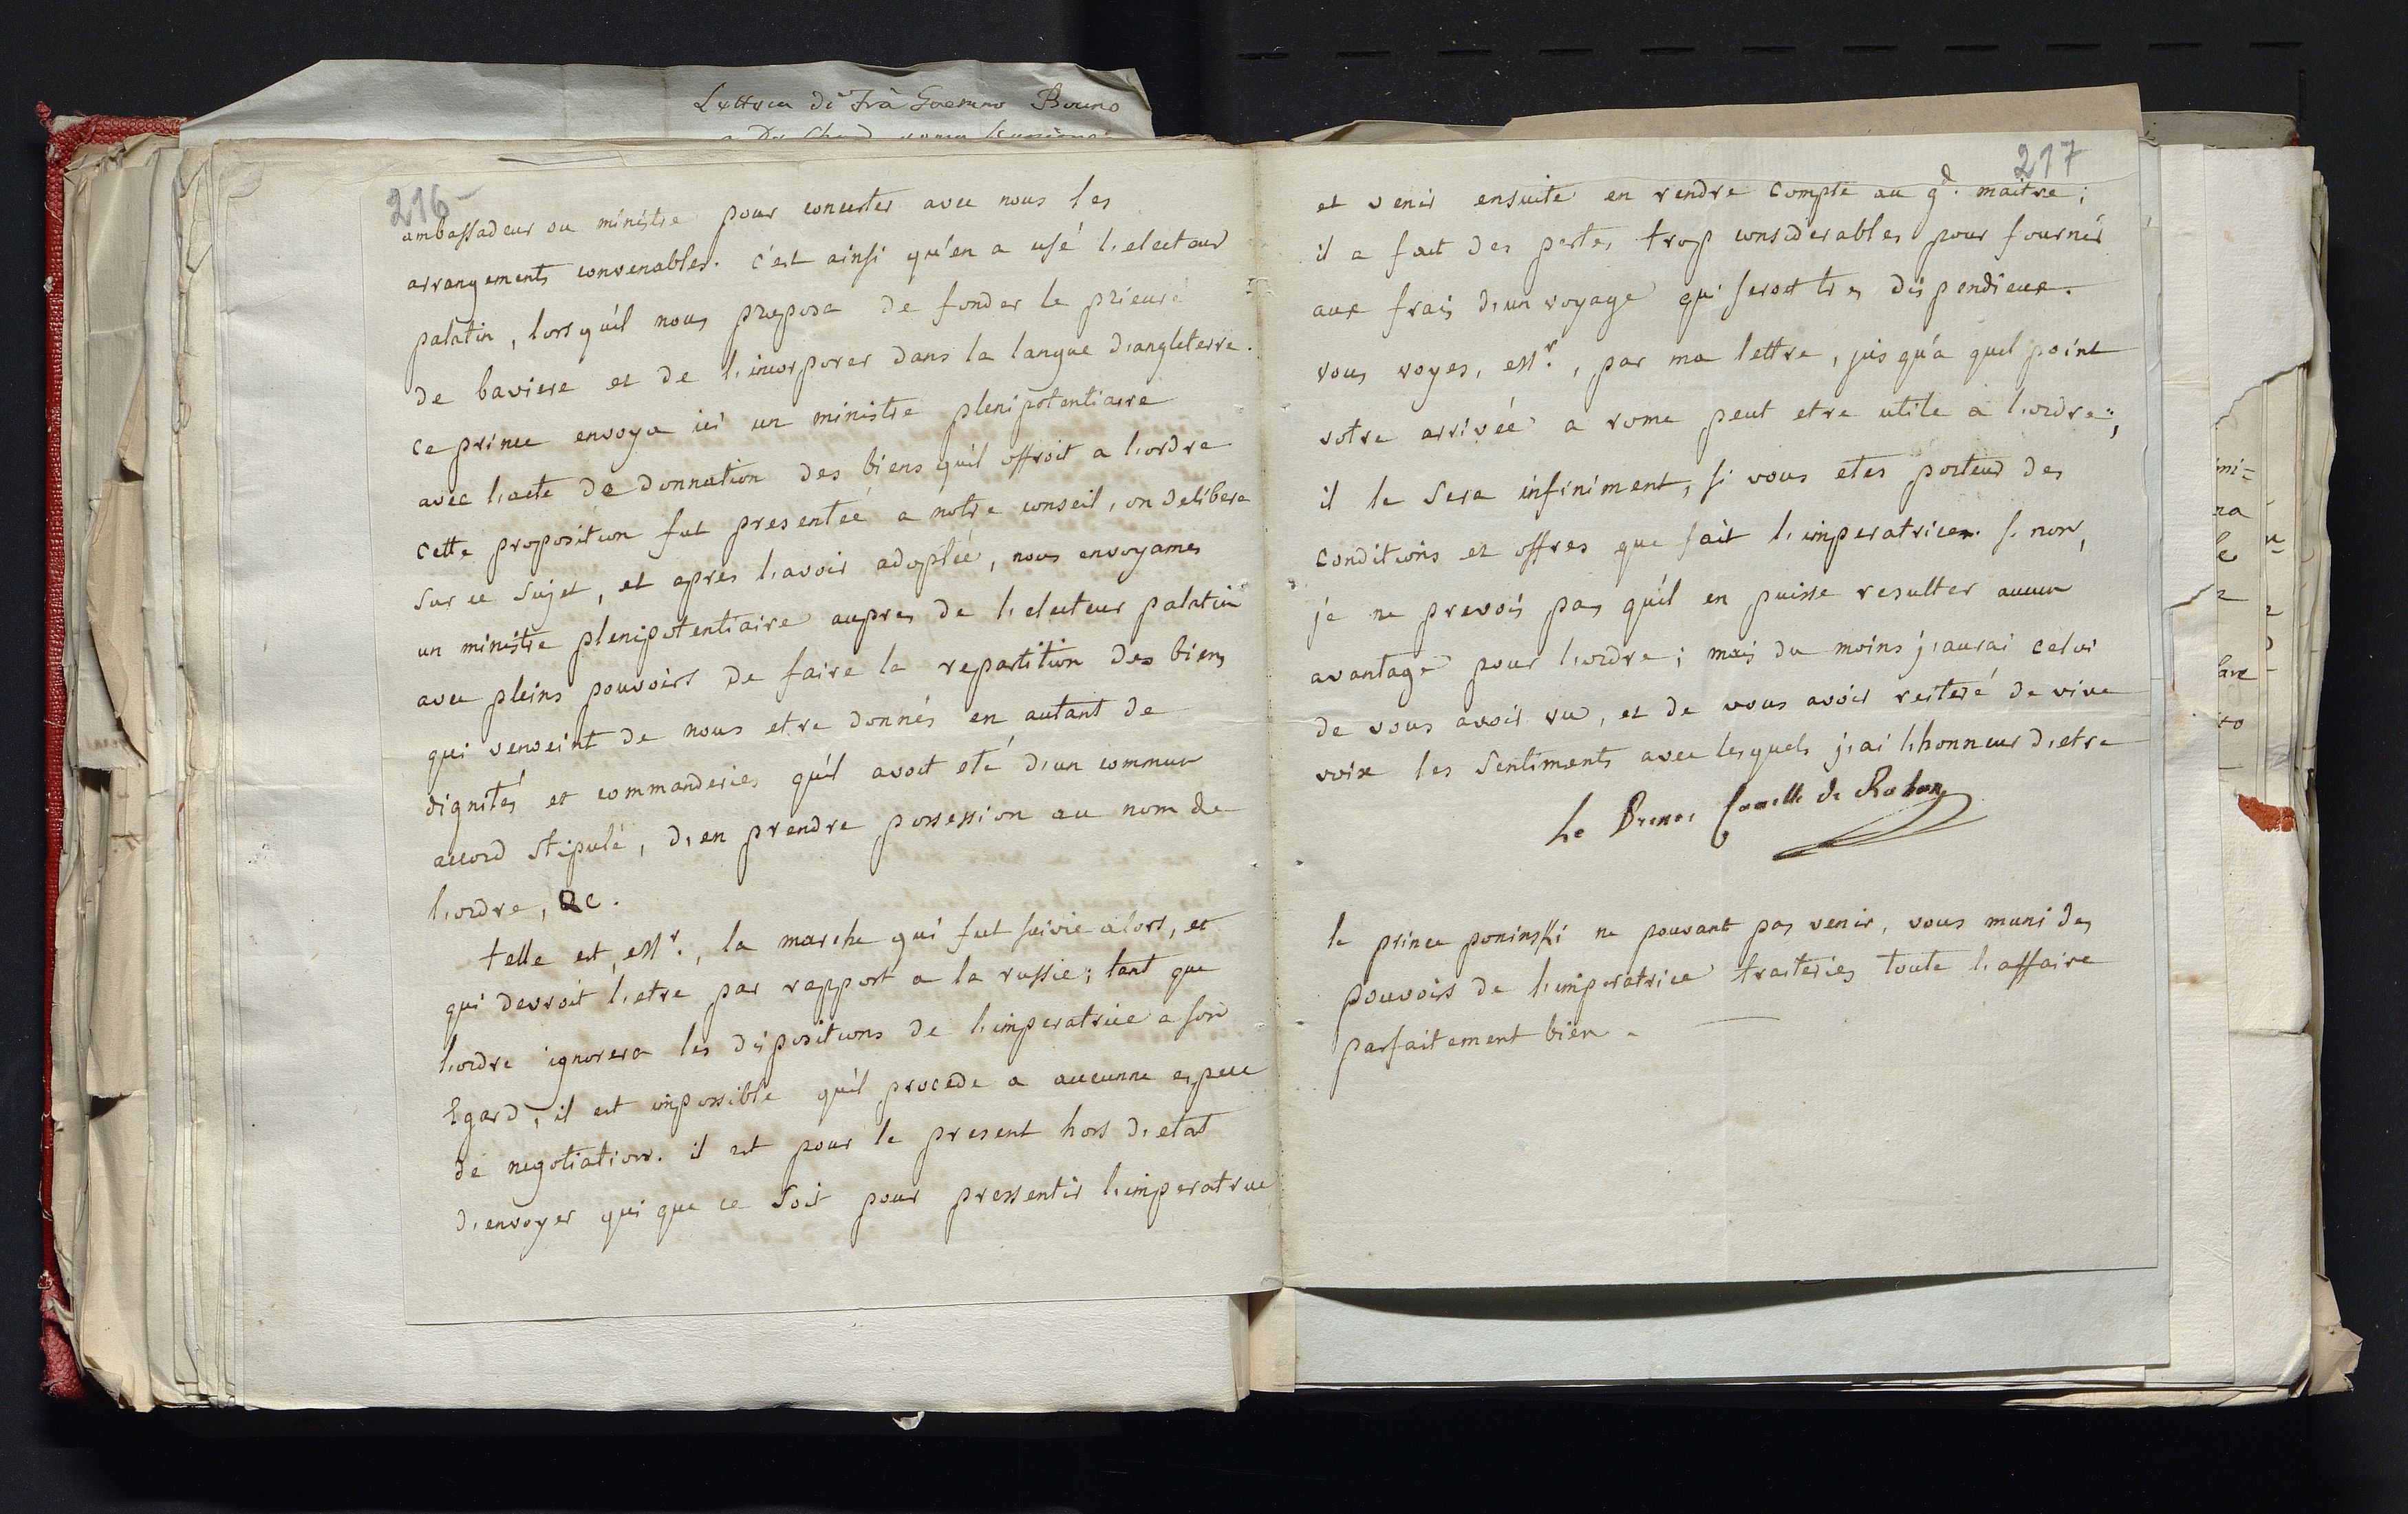 Lettera di Frà Gaetano Bruno
216
ambassadeur ou ministre pour concerter avec nous les
arrangements convenables. c'est ainsi qu'en a usé l'electeur
palatin, lorsqu'il nous proposa de fonder le prieuré
de baviere et de l'incorporer dans la langue d'angleterre.
ce prince envoya ici un ministre plenipotentiaire
avec l'acte de donnation des biens qu'il offroit a l'ordre
cette proposition fut presentée a notre conseil, on delibera
sur ce sujet, et apres l'avoir adoptée, nous envoyames
un ministre plenipotentiaire aupres de l'electeur palatin
avec pleins pouvoirs de faire la repartition des biens
qui venoient de nous etre donnés en autant de
dignités et commanderies qu'il avoit eté d'un commun
accord stipulé, d'en prendre possession au nom de
l'ordre, &c.
telle est, mr., la marche qui fut suivie alors, et
qui devroit l'etre par rapport a la russie; tant que
l'ordre ignorera les dispositions de l'imperatrice a son
Egard, il est impossible qu'il procede a aucunne espece
de negotiation. il est pour le present hors d'etat
d'envoyer qui que ce soit pour pressentir l'imperatrice
217
et venir ensuite en rendre compte au gd. maitre;
il a fait des pertes trop considerables pour fournir
aux frais d'un voyage qui seroit tres dispendieux.
vous voyes, mr., par ma lettre, jusqu'a quel point
votre arrivée a rome peut etre utile a l'ordre;
il le sera infiniment, si vous etes porteur des
conditions et offres que fait l'imperatrice. si non,
je ne prevois pas qu'il en puisse resulter aucun
avantage pour l'ordre; mais du moins j'aurai celui
de vous avoir vu, et de vous avoir reiteré de vive
voix les sentiments avec lesquels j'ai l'honneur d'etre
Le Prince Camille de Rohan
le prince poninski ne pouvant pas venir, vous muni des
pouvoirs de l'imperatrice traiteries toute l'affaire
parfaitement bien.